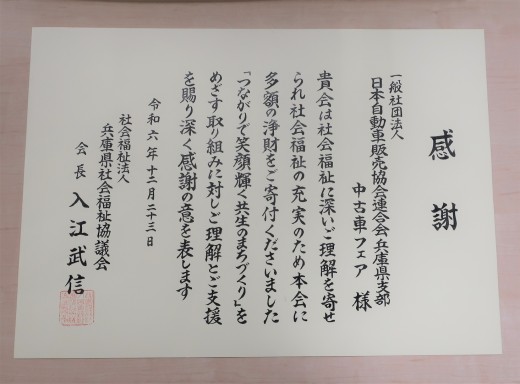 感謝
一般社団法人
日本自動車販売協会連合会兵庫県支部
中古車フェア 様
貴会は社会福祉に深いご理解を寄せ
られ社会福祉の充実のため本会に
多額の浄財をご寄付くださいました
「つながりで笑顔輝く共生のまちづくり」を
めざす取り組みに対しご理解とご支援
を賜り深く感謝の意を表します
令和六年十二月二十三日
社会福祉法人
兵庫県社会福祉協議会
会長 入江武信